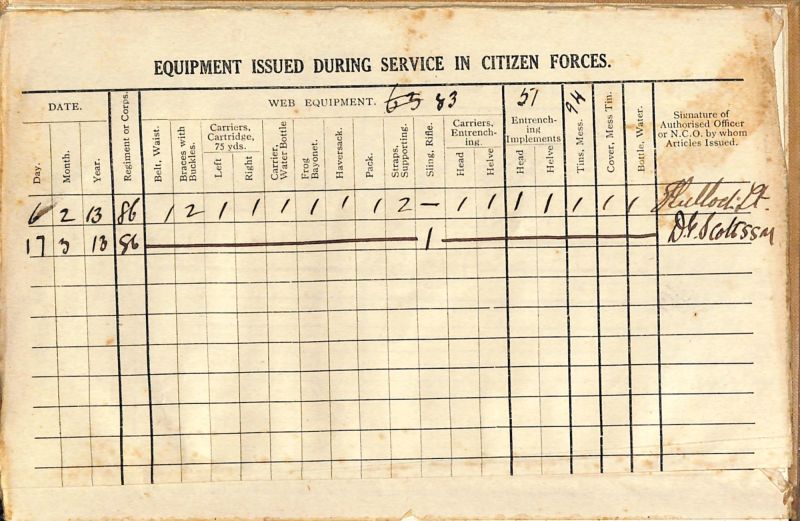 EQUIPMENT ISSUED DURING SERVICE IN CITIZEN FORCES.
DATE.
Day.
Month.
Year.
Regiment or Corps.
WEB EQUIPMENT. 63 83
Belt, Waist.
Braces with Buckles.
Carriers, Cartridge, 75 yds.
Left
Right
Carrier, Water Bottle
Frog Bayonet.
Haversack.
Pack.
Straps, Supporting.
Sling, Rifle.
Carriers, Entrench-ing.
Head
Helve
51
Entrench-ing Implements
Head
Helve
94
Tins, Mess.
Cover, Mess Tin.
Bottle, Water.
Signature of Authorised Officer or N.C.O. by whom Articles Issued.
6 2 13 86 1 2 1 1 1 1 1 1 2 — 1 1 1 1 1 1 1 Lt.
17 3 13 86 1 Scott SSM